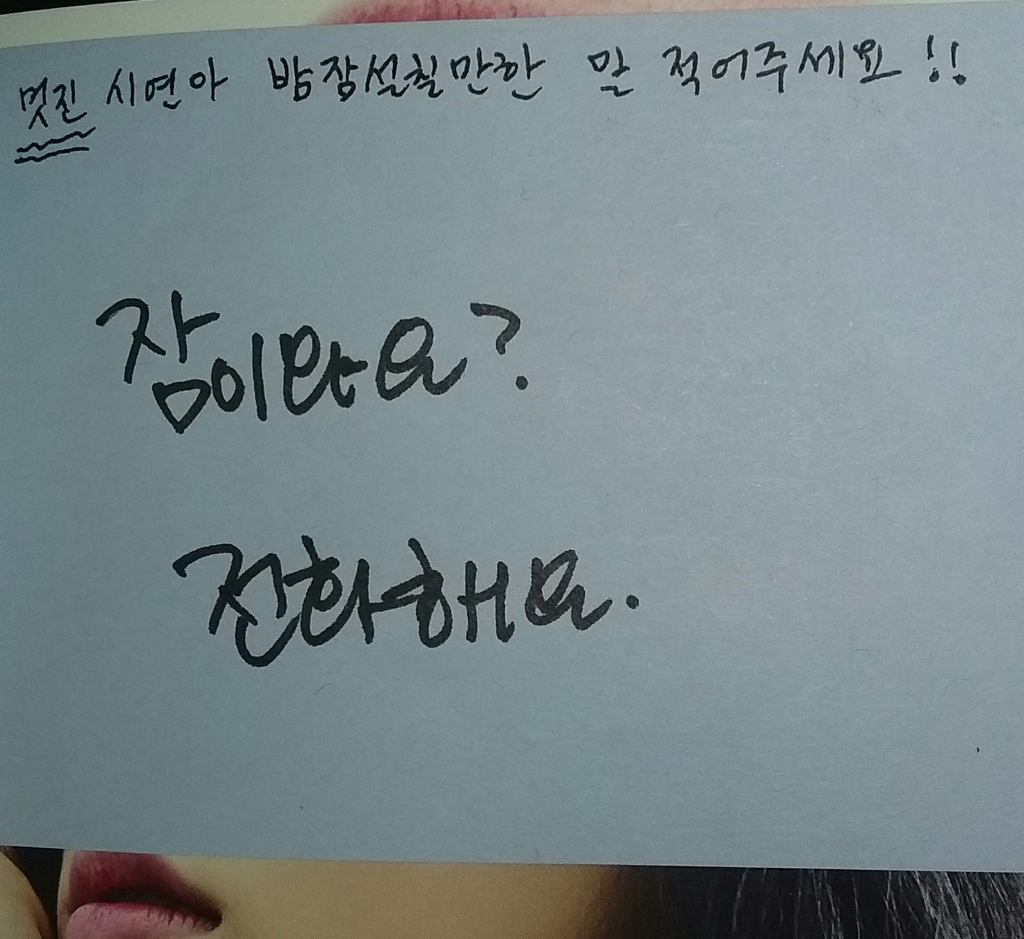 멋진 시연아 밤잠설칠만한 말 적어주세요!!
잠이와요?
전화해요.